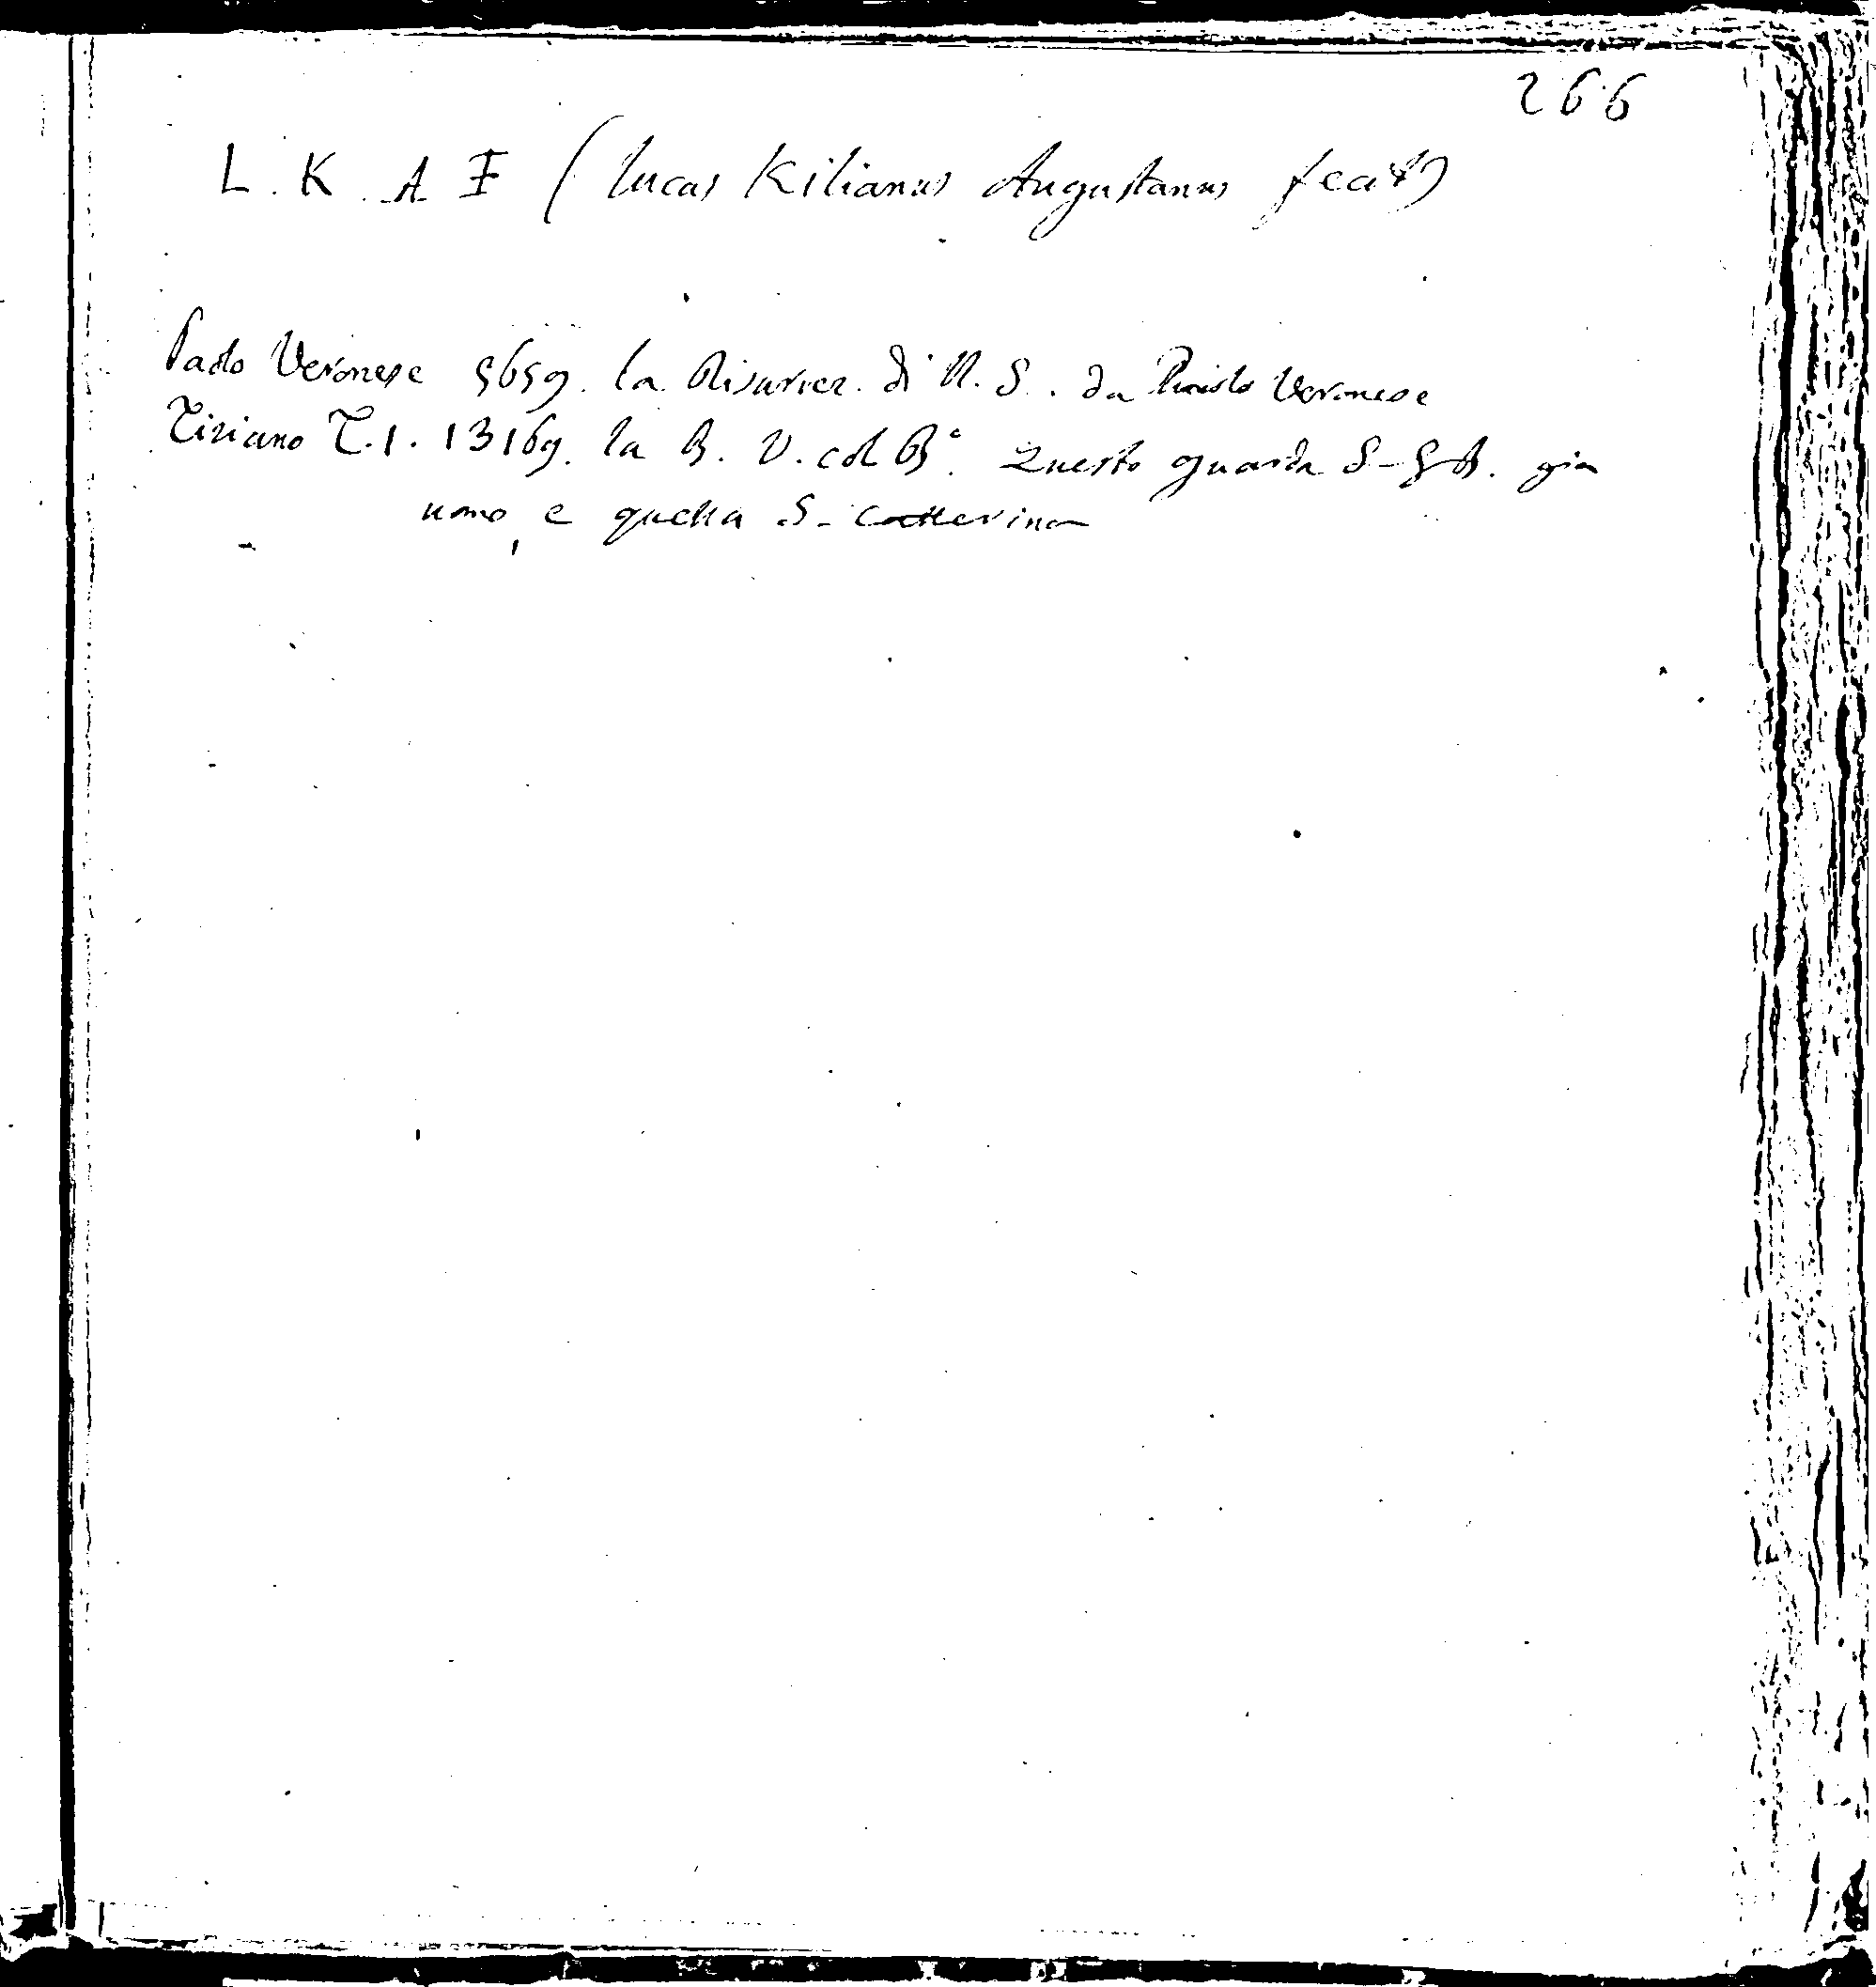 266
L. K. A F (Lucas Kilianus Augustanus fecit)
Paolo Veronese 5659. la Risurrez. di N. S. da Paolo Veronese
Tiziano T.1. 13169. la B. V. col B.º Questo guarda S. G B. già
uomo, e quella S. Catterina